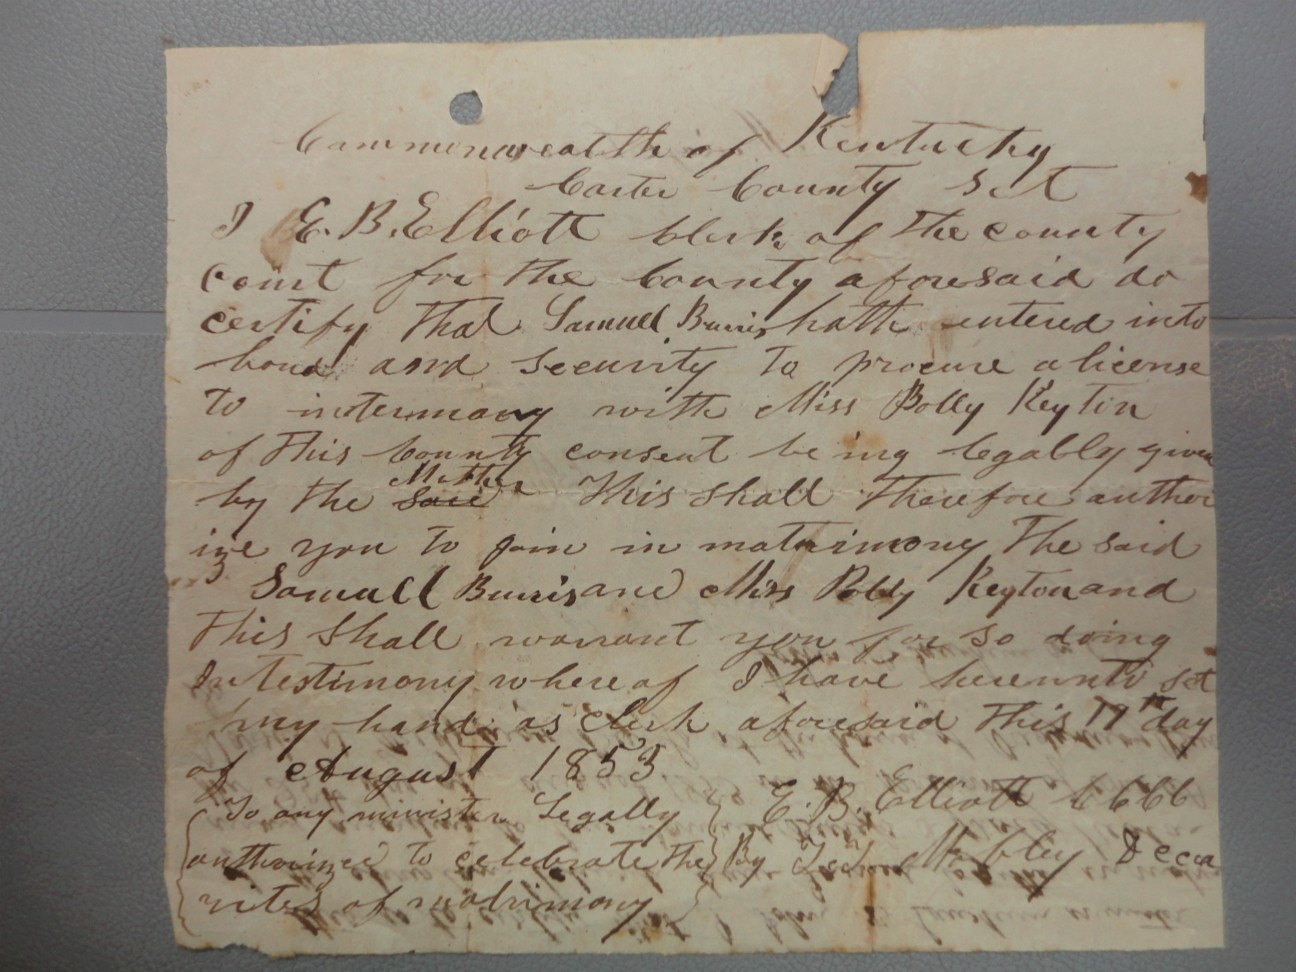 Commonwealth of Kentucky
Carter County Sct
I E. B. Elliott Clerk of the county
court for the County aforesaid do
certify that Samuel Burris hath entered into
bond and security to procure a license
to intermarry with Miss Polly Keyton
of this County consent being legally given
by the Mother This shall therefore author
ize you to join in matrimony the said
Samuell Burris and Miss Polly Keyton and
this shall warrant you for so doing
In testimony where of I have hereunto set
my hand as clerk aforesaid this 19th day
of August 1853
To any minister Legally
authorized to celebrate the
rites of matrimony
E. B. Elliott CCCC
By Mobley